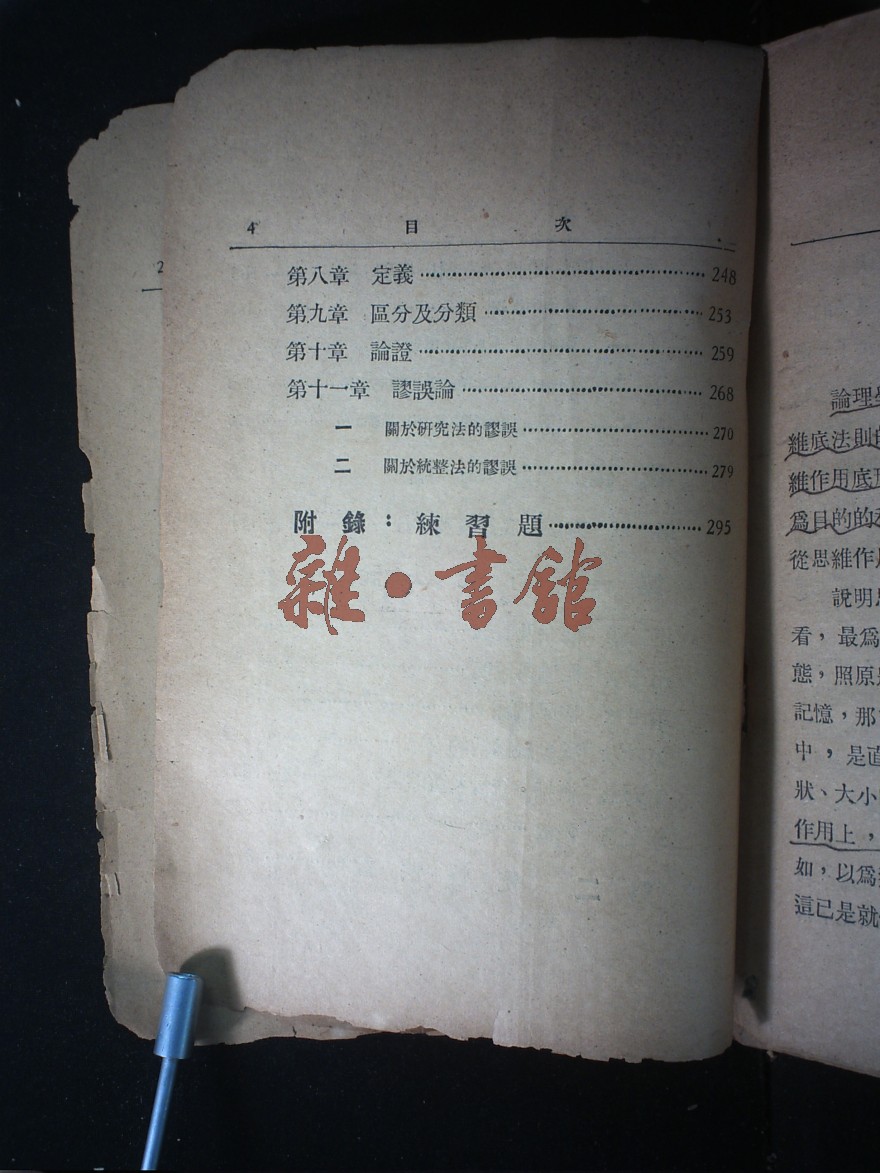 4 目 次
第八章 定義 248
第九章 區分及分類 253
第十章 論證 259
第十一章 謬誤論 268
一 關於研究法的謬誤 270
二 關於統整法的謬誤 279
附錄：練習題 295
雜•書館
2
論理學
維底法則的
維作用底
爲目的的
從思維作用
說明
看，最爲
態，照原
記憶，那
中，是直
狀、大小
作用上，
如，以爲
這已是就